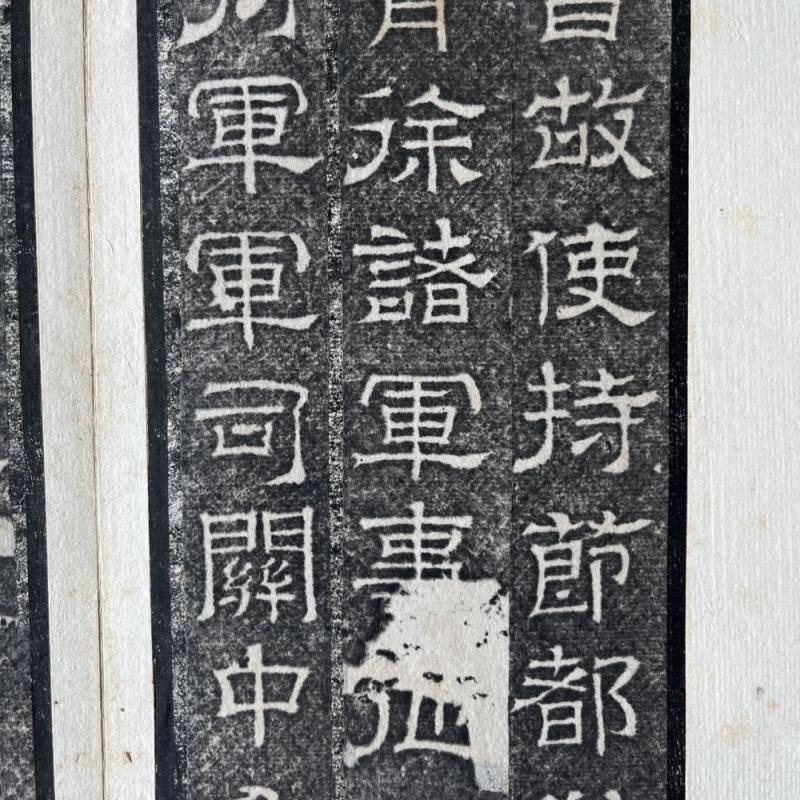 故使持節都
徐諸軍事征
軍軍司關中